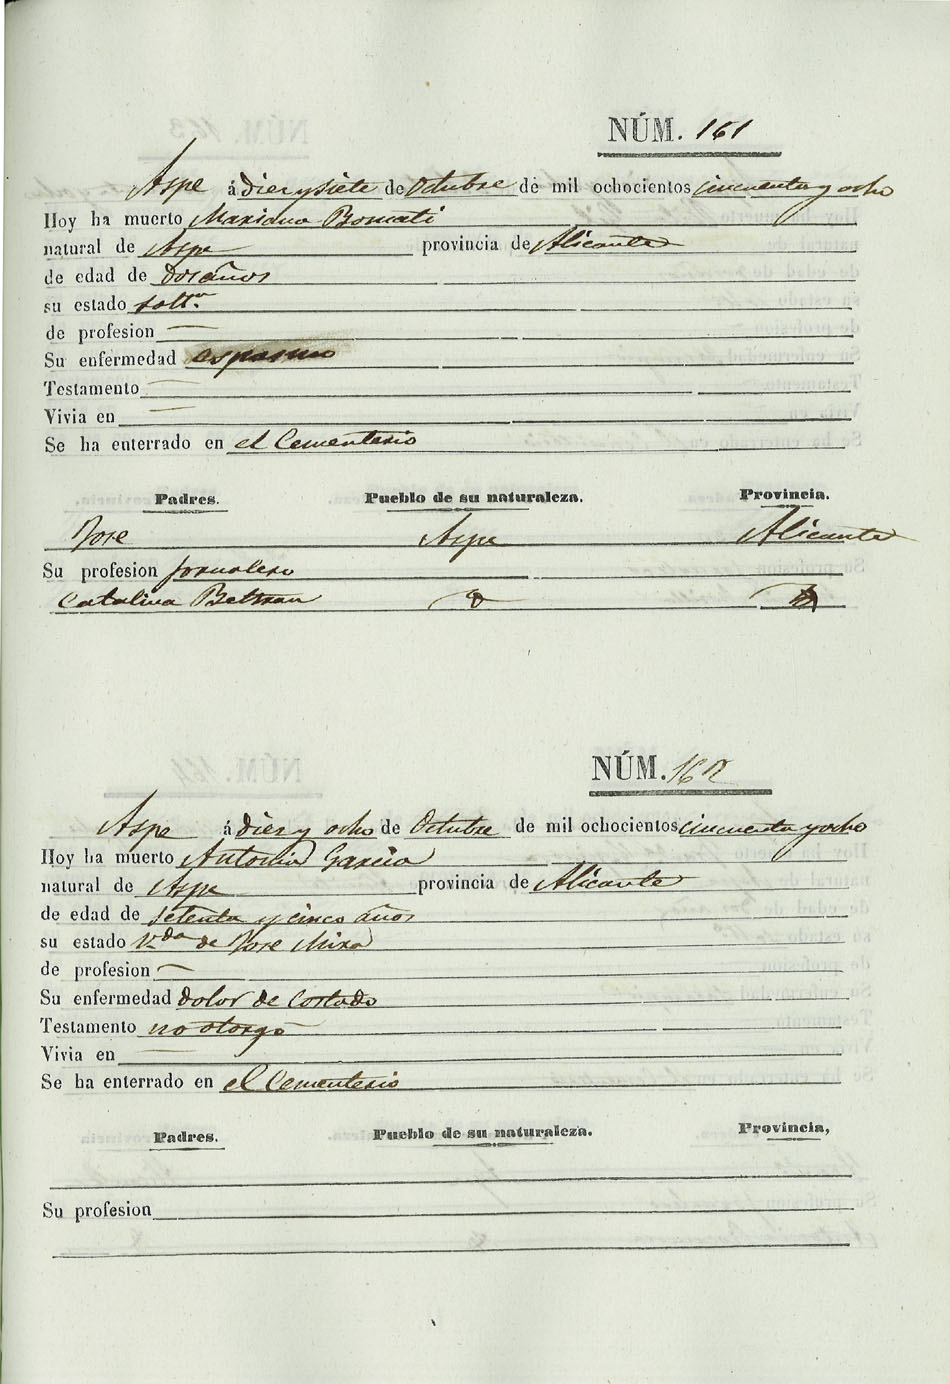 NÚM. 161
Aspe á diez y siete de Octubre de mil ochocientos cincuenta y ocho
Hoy ha muerto Mariana Bonmati
natural de Aspe provincia de Alicante
de edad de dos años
su estado solt.ª
de profesion
Su enfermedad espasmo
Testamento
Vivia en
Se ha enterrado en el Cementerio
Padres. Pueblo de su naturaleza. Provincia.
Jose Aspe Alicante
Su profesion jornalero
Catalina Beltran
NÚM. 162
Aspe á diez y ocho de Octubre de mil ochocientos cincuenta y ocho
Hoy ha muerto Antonia Garcia
natural de Aspe provincia de Alicante
de edad de setenta y cinco años
su estado V.da de Jose Mira
de profesion
Su enfermedad dolor de costado
Testamento no otorgó
Vivia en
Se ha enterrado en el Cementerio
Padres. Pueblo de su naturaleza. Provincia,
Su profesion